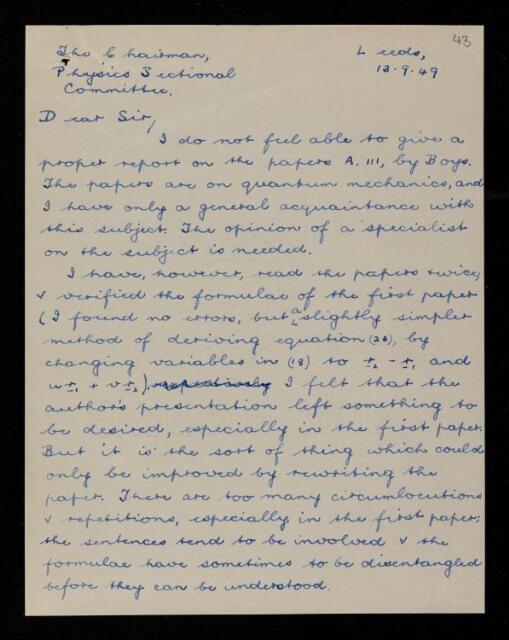 43
The Chairman, Leeds,
Physics Sectional 13.9.49
Committee.
Dear Sir,
I do not feel able to give a
proper report on the papers A.111, by Boys.
The papers are on quantum mechanics, and
I have only a general acquaintance with
this subject. The opinion of a specialist
on the subject is needed.
I have, however, read the papers twice,
& verified the formulae of the first paper
(I found no errors, but a slightly simpler
method of deriving equation (28), by
changing variables in (18) to r₂ - r₁ and
ur₁ + vr₂) I felt that the
author's presentation left something to
be desired, especially in the first paper.
But it is the sort of thing which could
only be improved by rewriting the
paper. There are too many circumlocutions
& repetitions, especially in the first paper;
the sentences tend to be involved & the
formulae have sometimes to be disentangled
before they can be understood.